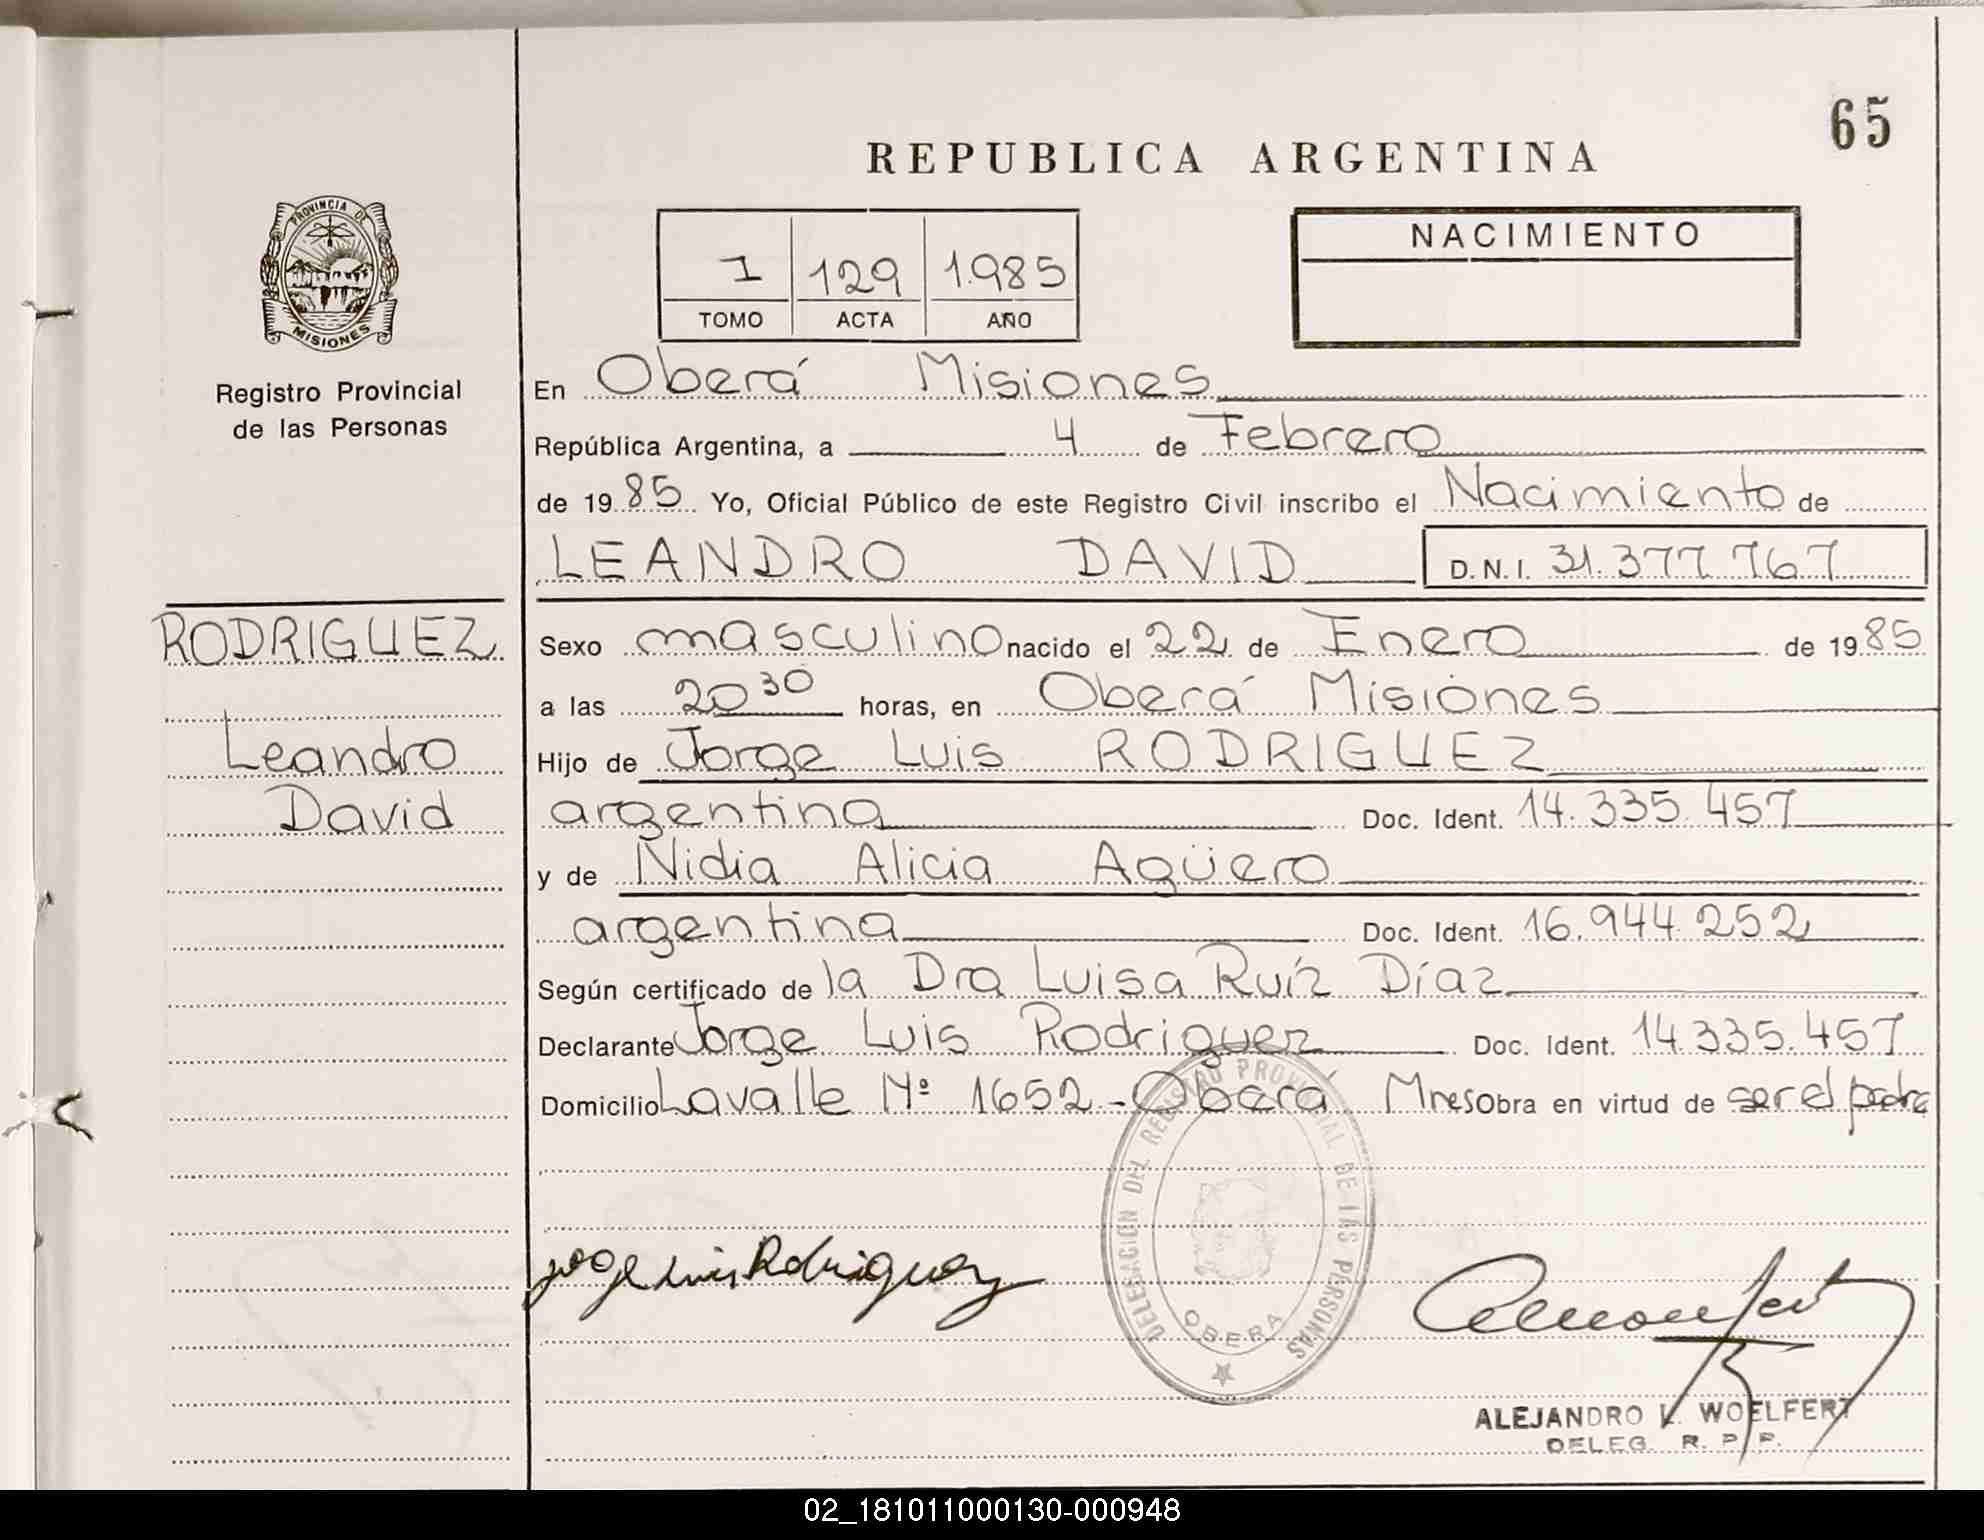 65
REPUBLICA ARGENTINA
PROVINCIA DE
MISIONES
Registro Provincial
de las Personas
1 129 1.985
TOMO ACTA AÑO
NACIMIENTO
En Oberá Misiones
República Argentina, a 4 de Febrero
de 1985 Yo, Oficial Público de este Registro Civil inscribo el Nacimiento de
LEANDRO DAVID D.N.I. 31.377.767
RODRIGUEZ
Leandro
David
Sexo masculino nacido el 22 de Enero de 1985
a las 20 30 horas, en Oberá Misiones
Hijo de Jorge Luis RODRIGUEZ
argentina Doc. Ident. 14.335.457
y de Nidia Alicia Agüero
argentina Doc. Ident. 16.944.252
Según certificado de la Dra Luisa Ruíz Díaz
Declarante Jorge Luis Rodriguez Doc. Ident. 14.335.457
Domicilio Lavalle Nº 1652-Oberá Mnes Obra en virtud de ser el padre
DELEGACION DEL REGISTRO PROVINCIAL DE LAS PERSONAS
OBERA
Jorge Luis Rodriguez
ALEJANDRO L. WOELFERT
DELEG. R. P. P.
02_181011000130-000948